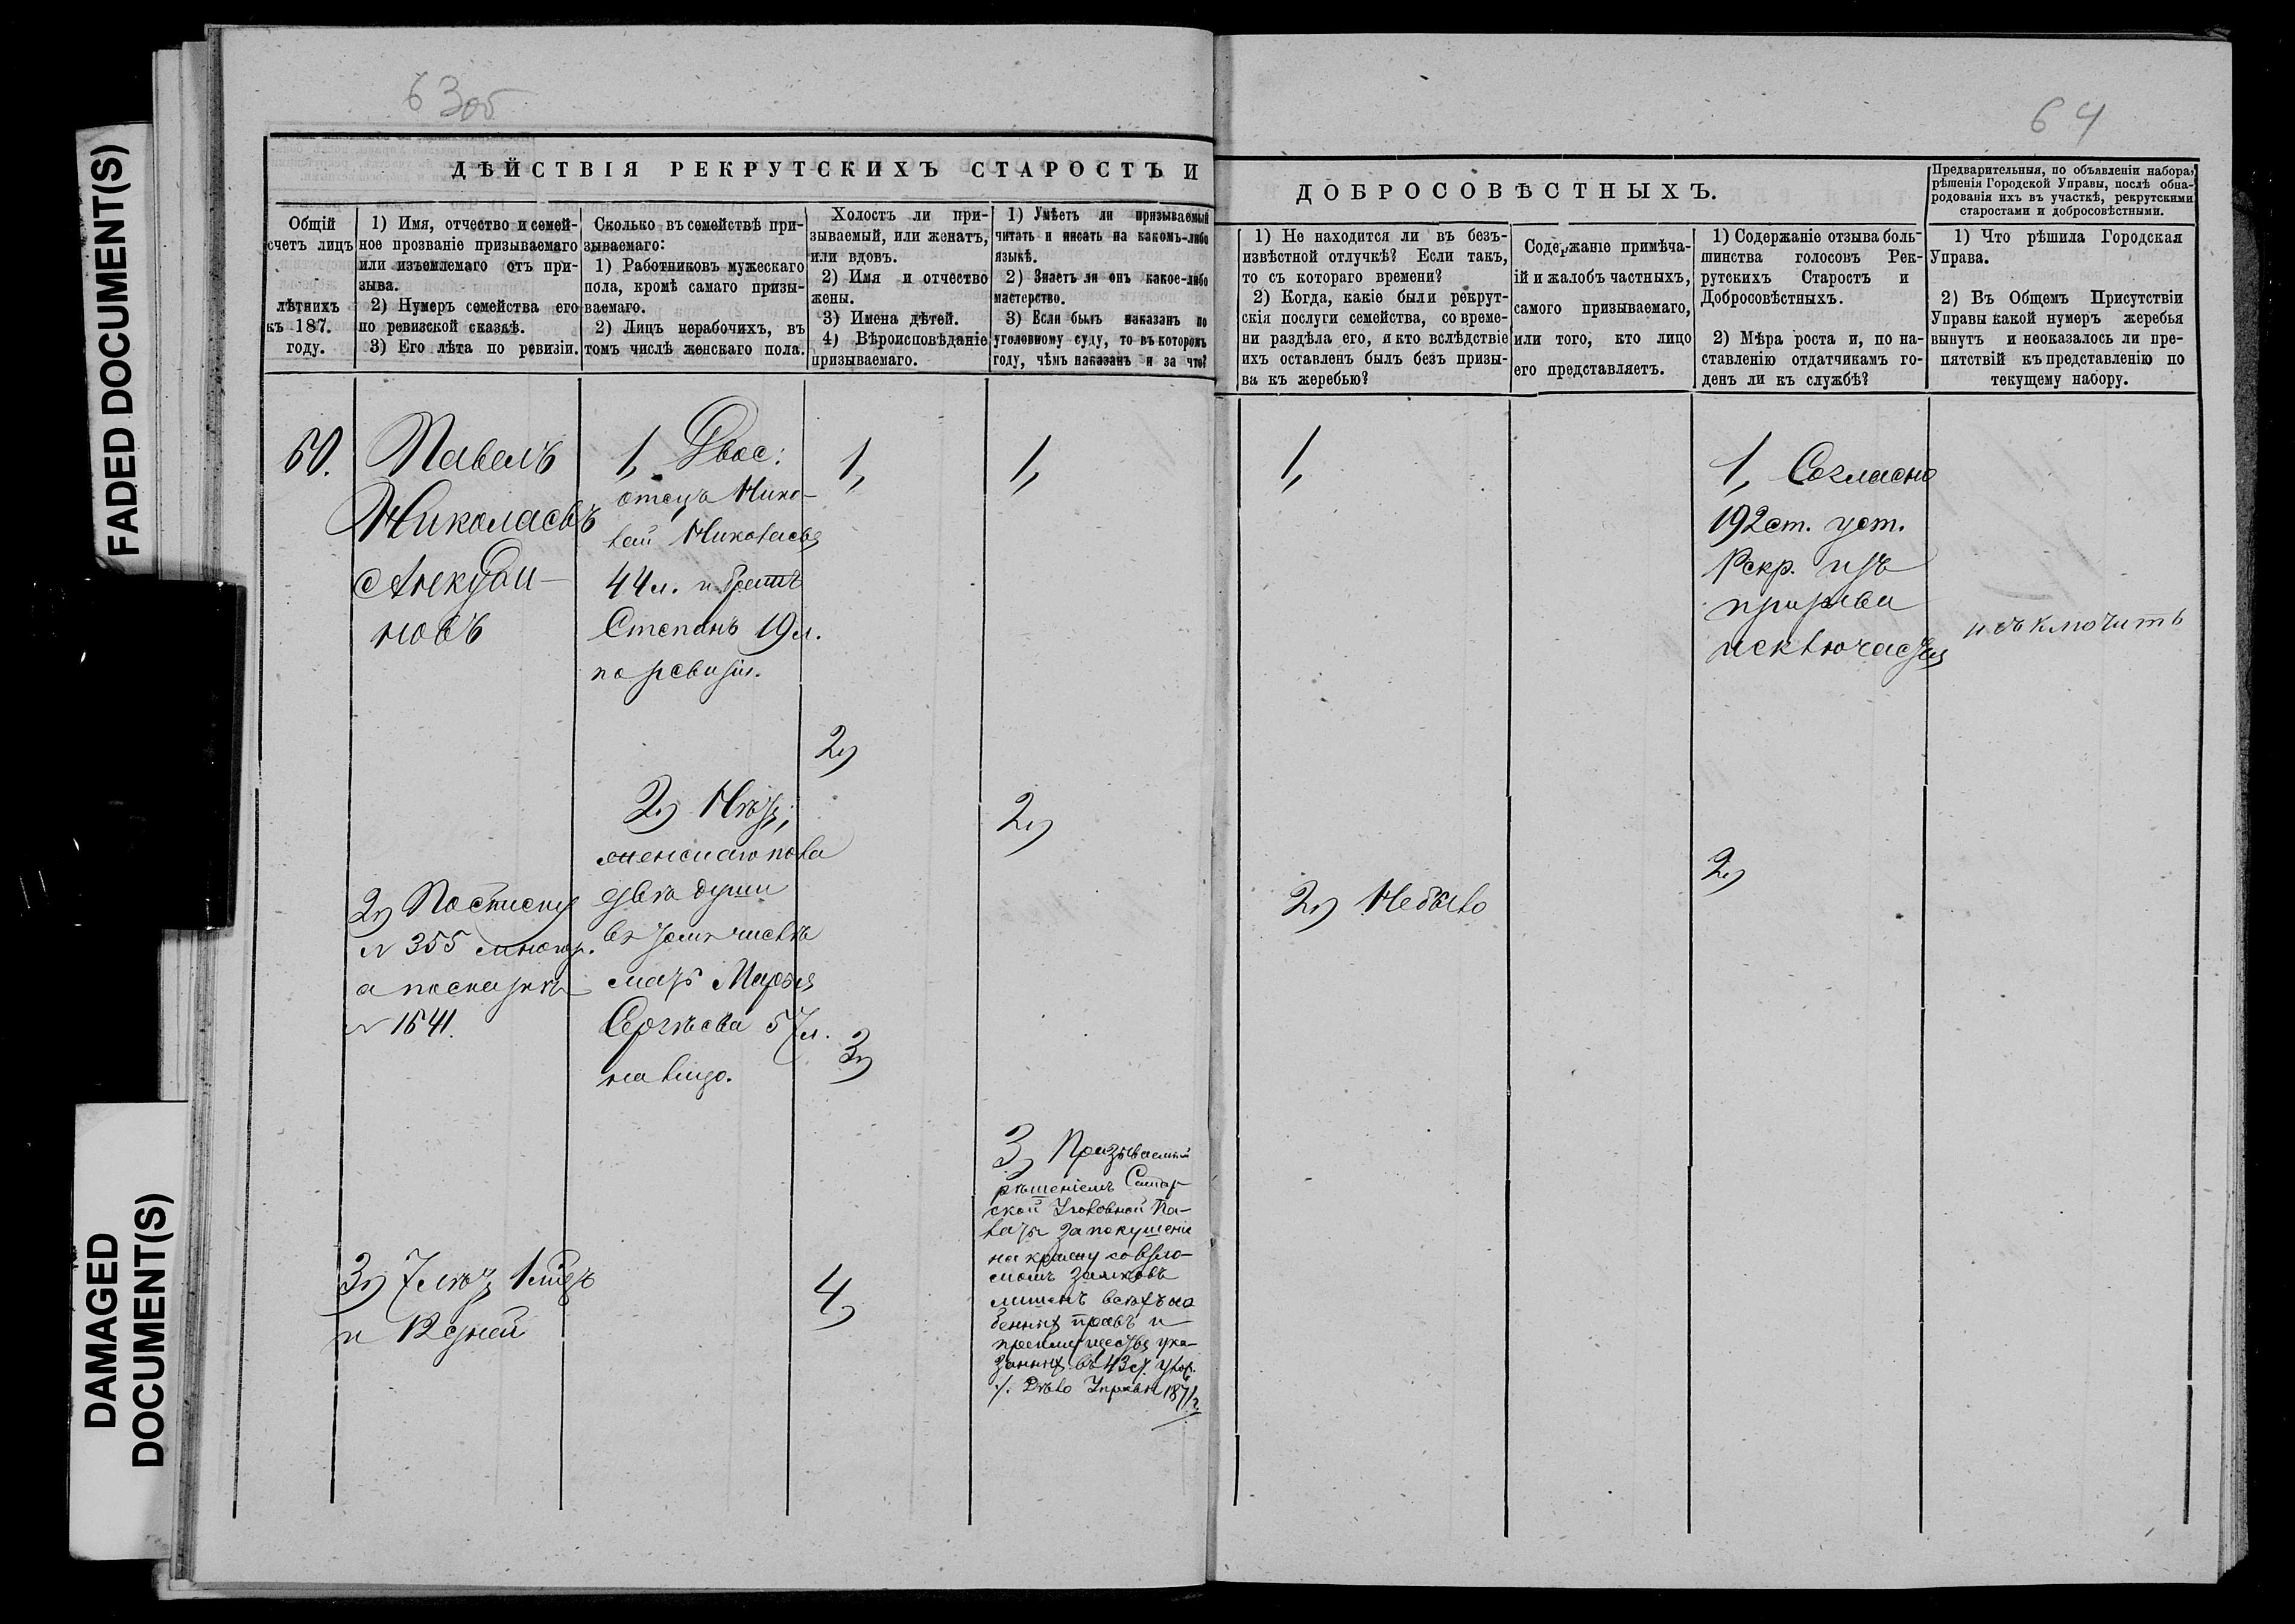 FADED DOCUMENT(S)
DAMAGED
DOCUMENT(S)
63об
64
ДѢЙСТВІЯ РЕКРУТСКИХЪ СТАРОСТЪ И
ДОБРОСОВѢСТНЫХЪ.
Предварительныя, по объявленіи набора,
рѣшенія Городской Управы, послѣ обна-
родованія ихъ въ участкѣ, рекрутскими
старостами и добросовѣстными.
Общій
счетъ лицъ
лѣтнихъ
къ 187.
году.
1) Имя, отчество и семей-
ное прозваніе призываемаго
или изъемлемаго отъ при-
зыва.
2) Нумеръ семейства его
по ревизской сказкѣ.
3) Его лѣта по ревизіи.
Сколько въ семействѣ при-
зываемаго:
1) Работниковъ мужескаго
пола, кромѣ самаго призы-
ваемаго.
2) Лицъ нерабочихъ, въ
томъ числѣ женскаго пола.
Холостъ ли при-
зываемый, или женатъ,
или вдовъ.
2) Имя и отчество
жены.
3) Имена дѣтей.
4) Вѣроисповѣданіе
призываемаго.
1) Умѣетъ ли призываемый
читать и писать на какомъ-либо
языкѣ.
2) Знаетъ ли онъ какое-либо
мастерство.
3) Если былъ наказанъ по
уголовному суду, то въ которомъ
году, чѣмъ наказанъ и за что?
1) Не находится ли въ безъ-
извѣстной отлучкѣ? Если такъ,
то съ котораго времени?
2) Когда, какіе были рекрут-
скія послуги семейства, со време-
ни раздѣла его, и кто вслѣдствіе
ихъ оставленъ былъ безъ призы-
ва къ жеребью?
Содержаніе примѣча-
ій и жалобъ частныхъ,
самого призываемаго,
или того, кто лицо
его представляетъ.
1) Содержаніе отзыва боль-
шинства голосовъ Рек-
рутскихъ Старостъ и
Добросовѣстныхъ.
2) Мѣра роста и, по на-
ставленію отдатчикамъ го-
денъ ли къ службѣ?
1) Что рѣшила Городская
Управа.
2) Въ Общемъ Присутствіи
Управы какой нумеръ жеребья
вынутъ и неоказалось ли пре-
пятствій къ представленію по
текущему набору.
60.
Павелъ
Николаевъ
2) Посписку
№ 355
а посказкѣ
№ 1641.
3) 7 лѣтъ 1 мѣсъ
и 12 дней
1, Двое:
отецъ Нико-
лай Николаевъ
44 л. и братъ
Степанъ 19 л.
по ревизіи.
2) Нѣтъ;
женскаго пола
двѣ души
въ томъ числѣ
мать Марья
Сергѣева 57 л.
на лицо.
1,
2)
3)
4)
1,
2)
3) Призываемый
рѣшеніемъ Самар-
ской Уголовной Па-
латы за покушеніе
на кражу со взло-
момъ замковъ
лишенъ всѣхъ осо
бенныхъ правъ и
преимуществъ ука-
занныхъ въ 43 ст. улож.
Дѣло Управы 1871 г.
1,
2) Небыло
1, Согласно
192 ст. уст.
Рекр. изъ
призыва
исключается
2)
исъключить